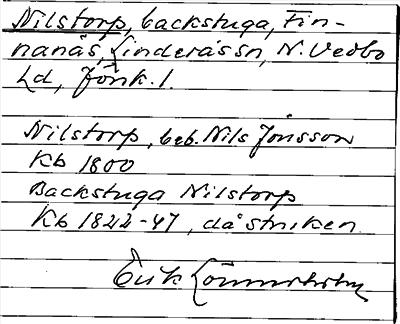 Nilstorp, backstuga, Fin-
nanäs, Linderås sn, N. Vedbo
hd, Jönk. l.
Nilstorp, beb. Nils Jönsson
Kb 1800
Backstuga Nilstorp
Kb 1822-47, då struken
Erik Lönnerholm